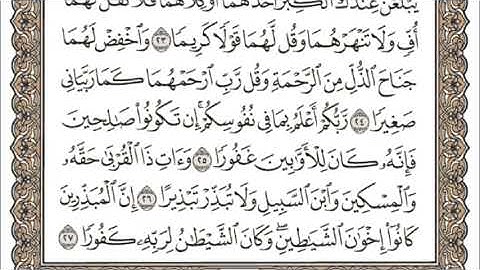 يَبْلُغَنَّ عِندَكَ ٱلْكِبَرَ أَحَدُهُمَآ أَوْ كِلَاهُمَا فَلَا تَقُل لَّهُمَآ
أُفٍّ وَلَا تَنْهَرْهُمَا وَقُل لَّهُمَا قَوْلًا كَرِيمًا ٢٣ وَٱخْفِضْ لَهُمَا
جَنَاحَ ٱلذُّلِّ مِنَ ٱلرَّحْمَةِ وَقُل رَّبِّ ٱرْحَمْهُمَا كَمَا رَبَّيَانِي
صَغِيرًا ٢٤ رَّبُّكُمْ أَعْلَمُ بِمَا فِي نُفُوسِكُمْ ۚ إِن تَكُونُوا۟ صَٰلِحِينَ
فَإِنَّهُۥ كَانَ لِلْأَوَّٰبِينَ غَفُورًا ٢٥ وَءَاتِ ذَا ٱلْقُرْبَىٰ حَقَّهُۥ
وَٱلْمِسْكِينَ وَٱبْنَ ٱلسَّبِيلِ وَلَا تُبَذِّرْ تَبْذِيرًا ٢٦ إِنَّ ٱلْمُبَذِّرِينَ
كَانُوٓا۟ إِخْوَٰنَ ٱلشَّيَٰطِينِ ۖ وَكَانَ ٱلشَّيْطَٰنُ لِرَبِّهِۦ كَفُورًا ٢٧